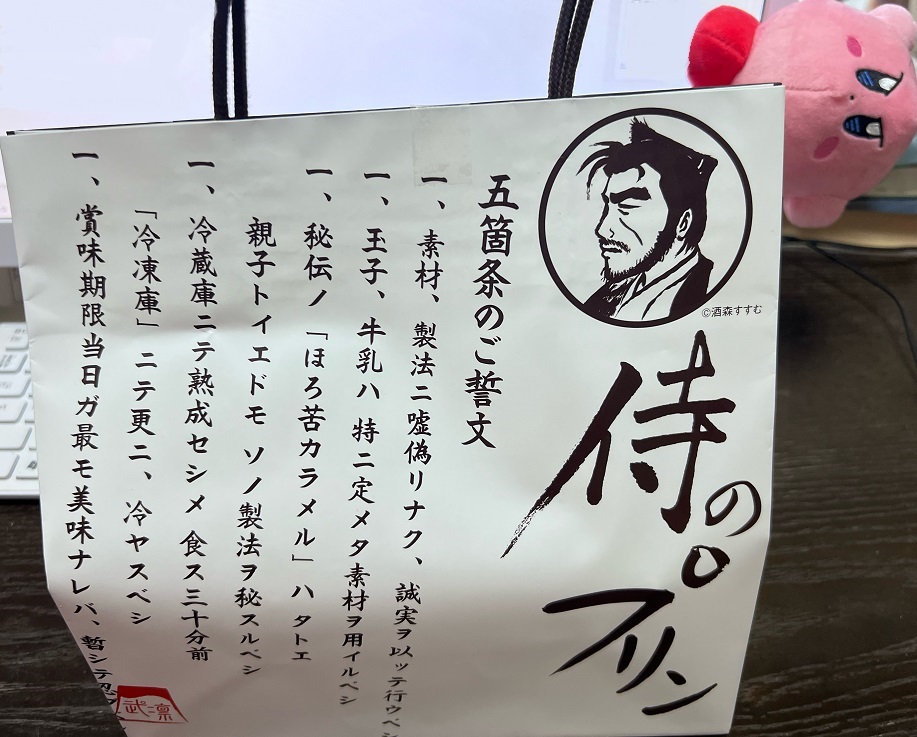 ©酒森すすむ
侍のプリン
五箇条のご誓文
一、素材、製法ニ嘘偽リナク、誠実ヲ以ッテ行ウベシ
一、玉子、牛乳ハ 特ニ定メタ素材ヲ用イルベシ
一、秘伝ノ「ほろ苦カラメル」ハ タトエ
親子トイエドモ ソノ製法ヲ秘スルベシ
一、冷蔵庫ニテ熟成セシメ 食ス三十分前
「冷凍庫」ニテ更ニ、冷ヤスベシ
一、賞味期限当日ガ最モ美味ナレバ、暫シテ
武凛